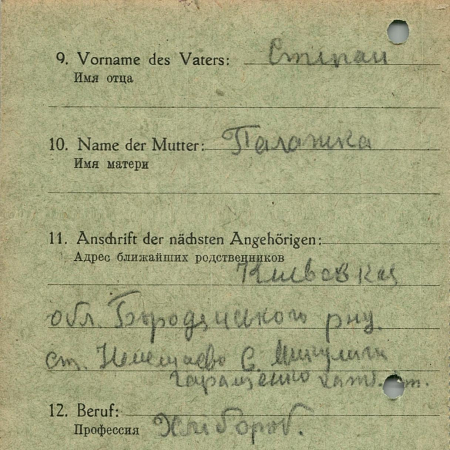 9. Vorname des Vaters: Степан
Имя отца
10. Name der Mutter: Палажка
Имя матери
11. Anschrift der nächsten Angehörigen:
Адрес ближайших родственников
Киевская
обл. Бородянского рну.
ст. с. Микуличи
12. Beruf: Хлебороб.
Профессия